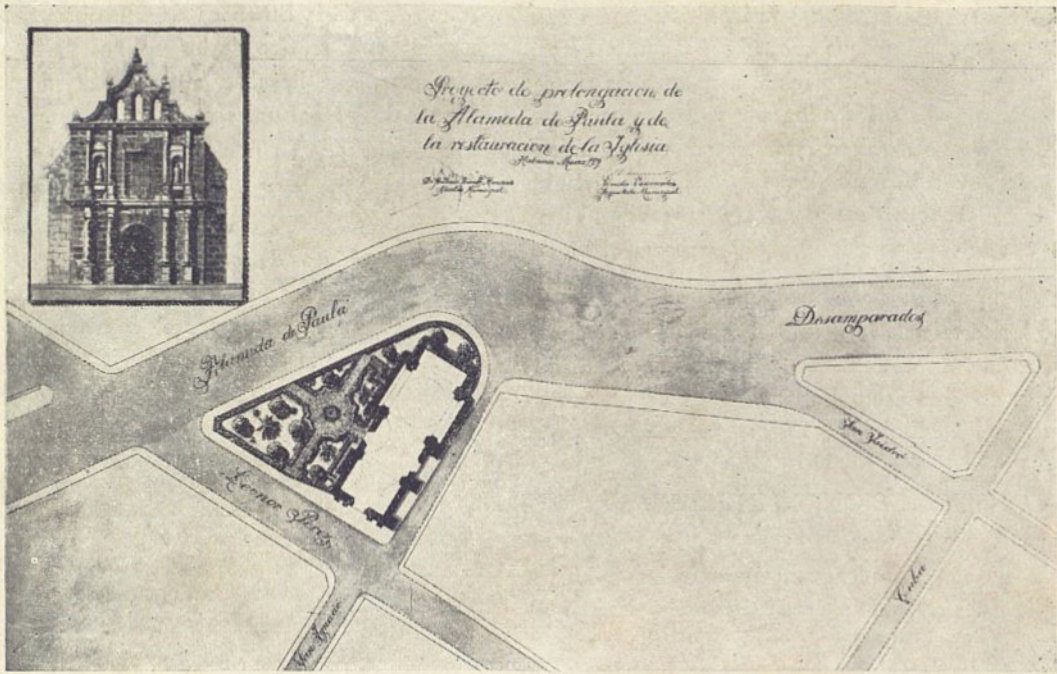 Proyecto de prolongacion de
la Alameda de Paula y de
la restauracion de la Yglesia
Habana Marzo
Alcalde Municipal
Emilio
Arquitecto Municipal
Alameda de Paula
Desamparados
Leonor Perez
San Ysidro
San Ygnacio
Cuba